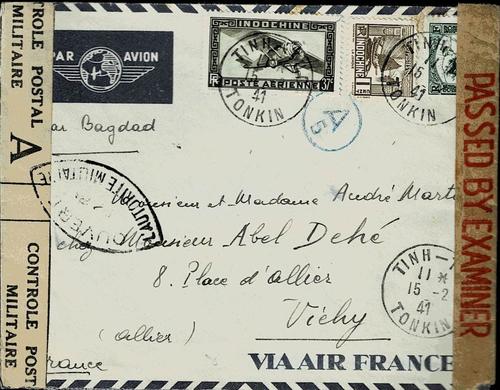 CONTROLE POSTAL
MILITAIRE
A
PAR AVION
INDOCHINE
POSTE AERIENNE
INDOCHINE
TINH-
15
41
TONKIN
TINH-
15
41
TONKIN
A
5
PASSED BY EXAMINER
Bagdad
OUVERT
L'AUTORITÉ MILITAIRE
Monsieur et Madame André
chez Monsieur Abel Dehé
8. Place d'allier
Vichy
(allier)
France
TINH-
11 *
15 -2
41
TONKIN
CONTROLE POST
MILITAIRE
VIA AIR FRANCE